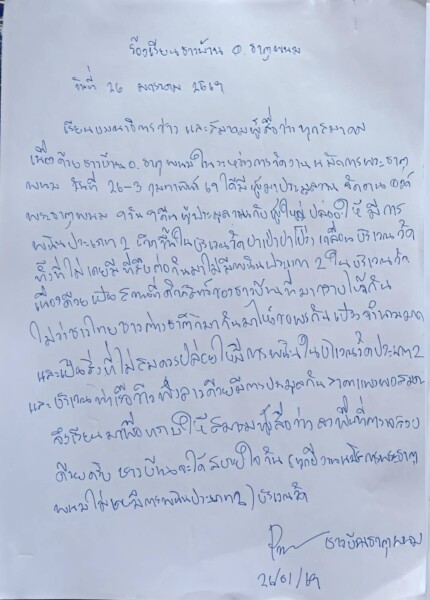 ร้องเรียนชาวบ้าน อ. ธาตุพนม
วันที่ 26 มกราคม 2569
เรียนบรรณาธิการข่าว และสมาคมผู้สื่อข่าวทุกสมาคม
เนื่องด้วยชาวบ้าน อ. ธาตุพนม ในระหว่างการจัดงานนมัสการพระธาตุ
พนม วันที่ 26-3 กุมภาพันธ์ 69 ได้มีผู้มาประมูลงาน จัดงาน องค์
พระธาตุพนม 9 วัน 9 คืน ผู้ประมูลงานกับผู้ใหญ่ ปล่อยให้ มีการ
พนันประเภท 2 เกิดขึ้นในบริเวณวัด บริเวณวัด
ทั้งที่ไม่เคยมี ไม่มีพนันประเภท 2 ในบริเวณวัด
เนื่องด้วย เป็นสถานที่ศักดิ์สิทธิ์ของชาวบ้านที่มากราบไหว้กัน
ไม่ว่าชาวไทย ชาวต่างชาติก็มากันมาไหว้ขอพรกันเป็นจำนวนมาก
และเป็นสิ่งที่ไม่สมควรปล่อยให้มีการพนันในบริเวณวัดประเภท 2
และบริเวณ มีการประมูลกัน ราคาแพงพอสมควร
จึงเรียนมาเพื่อทราบให้สมาคมผู้สื่อข่าว ลงพื้นที่ตรวจสอบ
ด้วยครับ ชาวบ้านจะได้สบายใจกัน (ทุกปีงานนมัสการพระธาตุ
พนมไม่เคยมีการพนันประเภท 2) บริเวณวัด
ชาวบ้านธาตุพนม
26/01/69